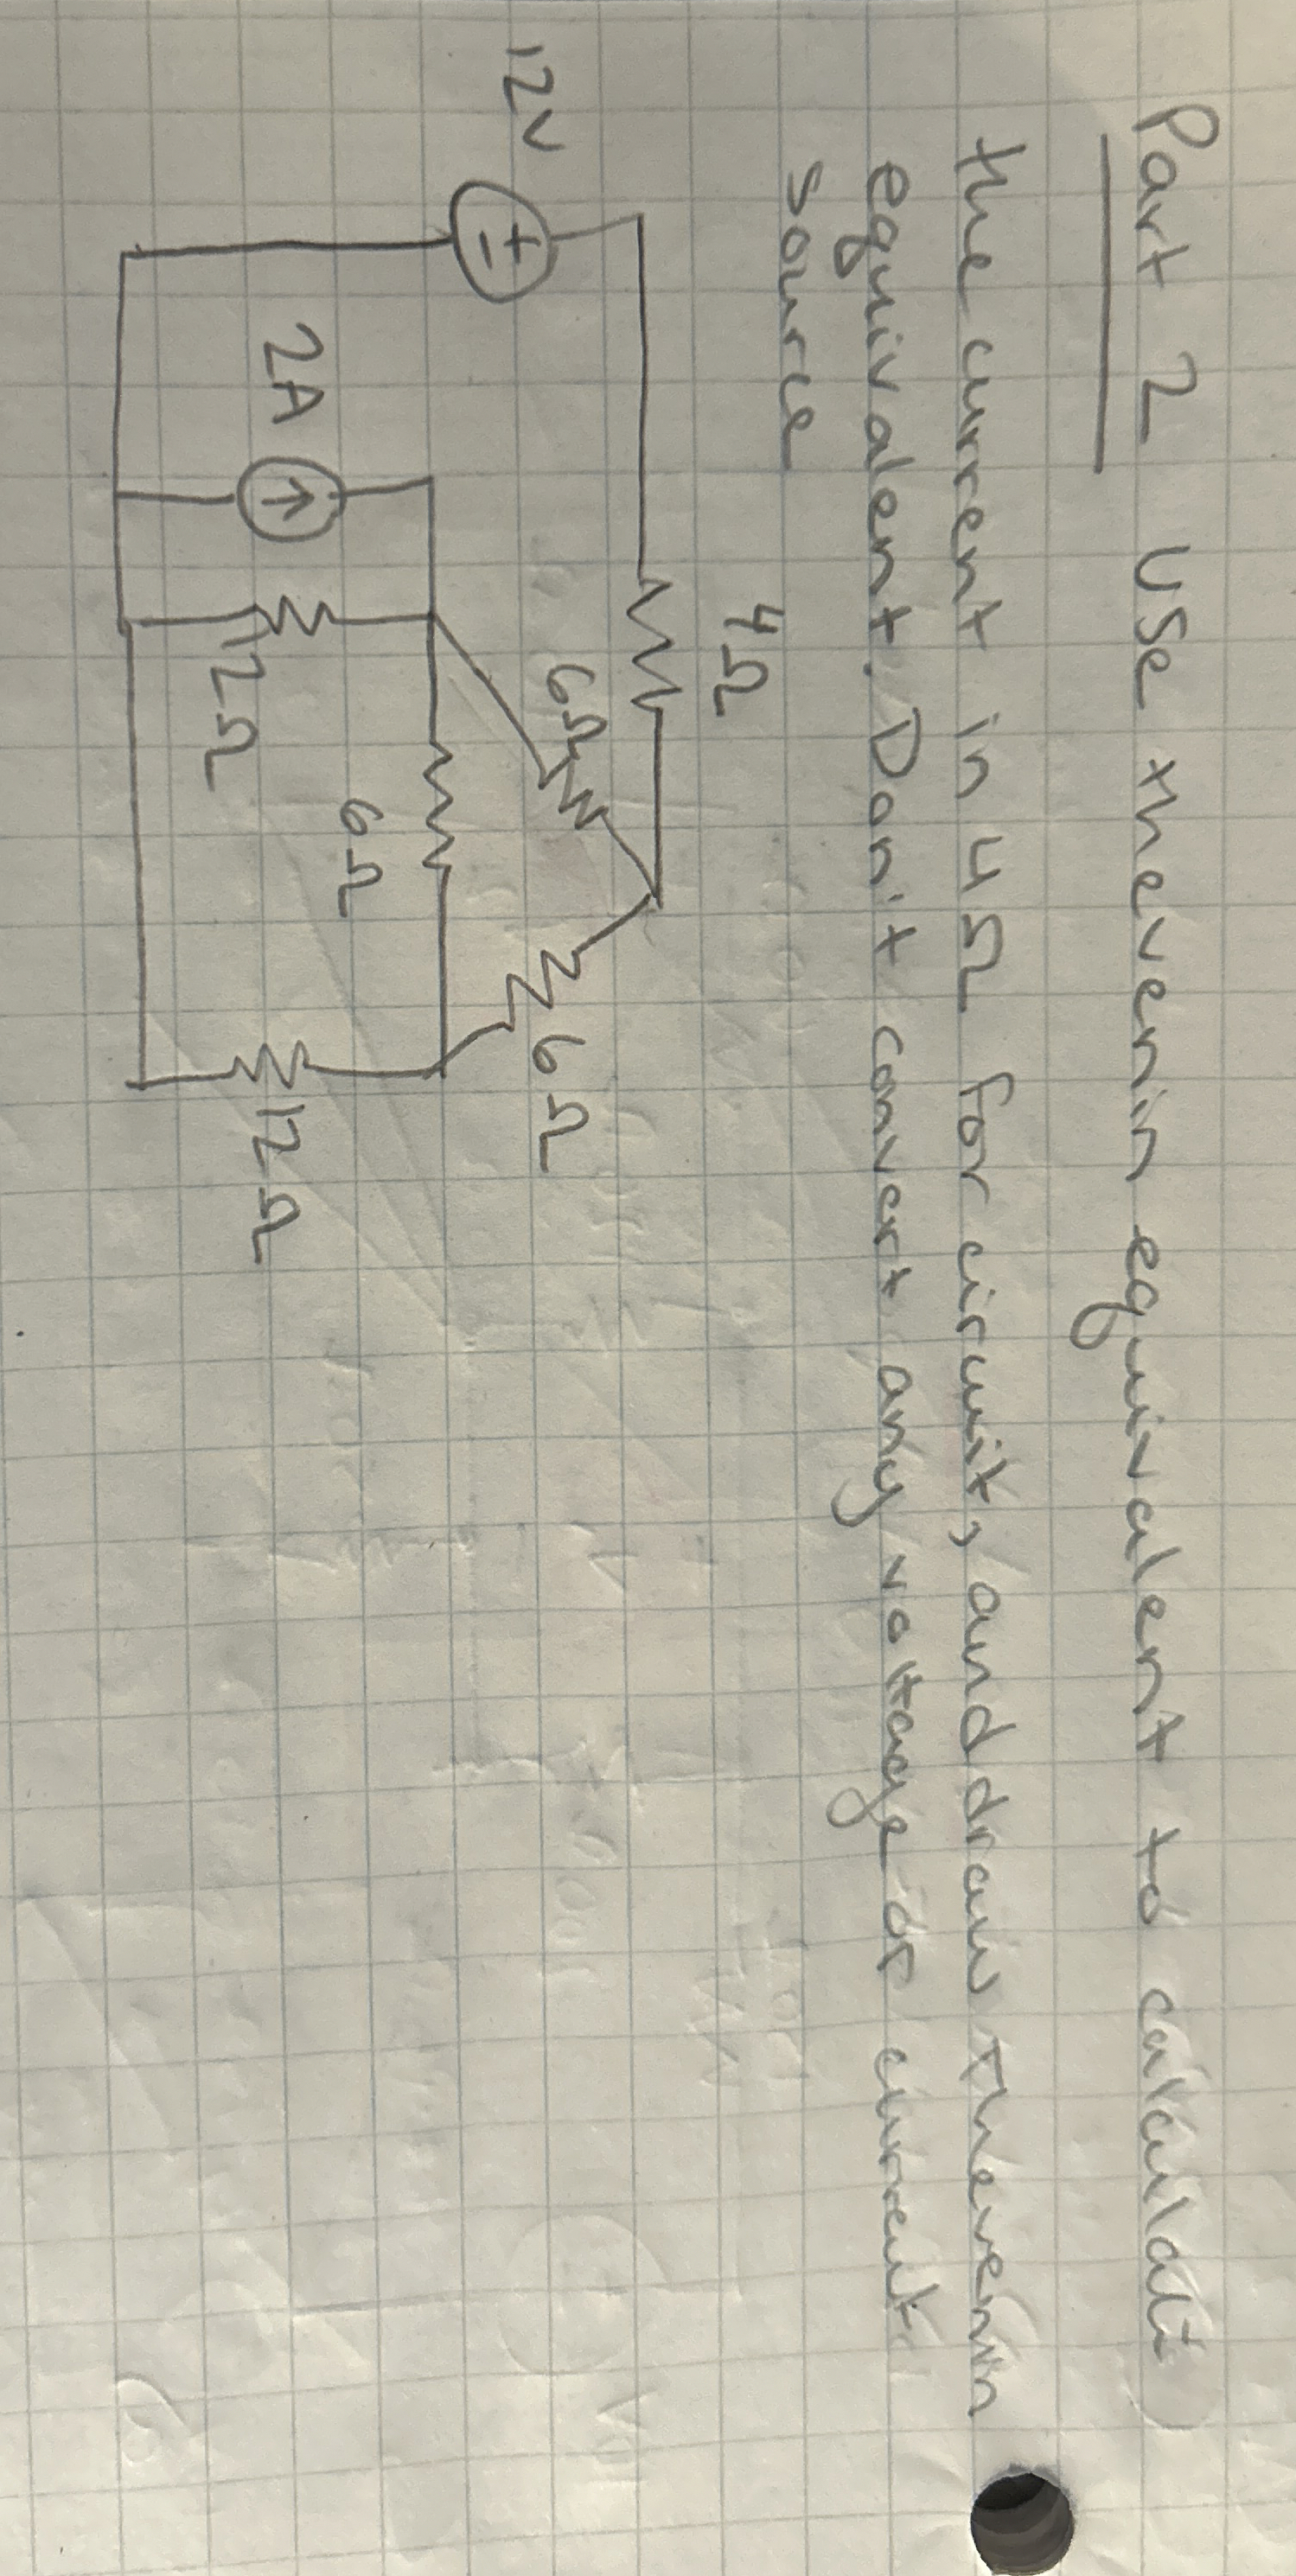 Part 2 Use thevenin equivalent to calculate
the current in 4Ω for circuit, and draw thevenin
equivalent. Don't convert any voltage or current
source
4Ω
12V
6Ω
6Ω
2A
6Ω
12Ω
12Ω